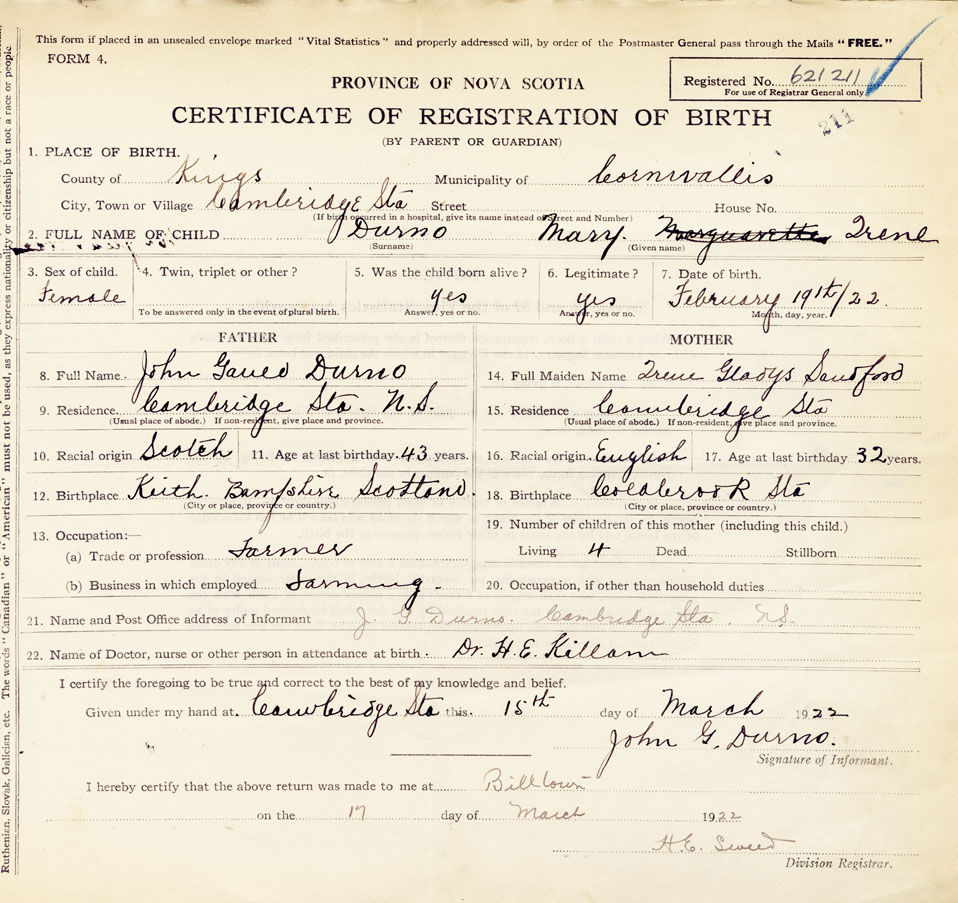 This form if placed in an unsealed envelope marked "Vital Statistics" and properly addressed will, by order of the Postmaster General pass through the Mails "FREE."
FORM 4.
Registered No. 621211
For use of Registrar General only
PROVINCE OF NOVA SCOTIA
CERTIFICATE OF REGISTRATION OF BIRTH
211
(BY PARENT OR GUARDIAN)
1. PLACE OF BIRTH.
County of Kings Municipality of Cornwallis
City, Town or Village Cambridge Sta Street House No.
(If birth occurred in a hospital, give its name instead of Street and Number)
2. FULL NAME OF CHILD Durno Mary. Irene
(Surname) (Given name)
3. Sex of child. 4. Twin, triplet or other? 5. Was the child born alive? 6. Legitimate? 7. Date of birth.
Female yes yes February 19th/22.
To be answered only in the event of plural birth. Answer, yes or no. Answer, yes or no. Month, day, year.
FATHER MOTHER
8. Full Name. John Durno 14. Full Maiden Name Irene Gladys Sandford
9. Residence Cambridge Sta. N.S. 15. Residence Cambridge Sta
(Usual place of abode.) If non-resident, give place and province. (Usual place of abode.) If non-resident, give place and province.
10. Racial origin Scotch 11. Age at last birthday 43 years. 16. Racial origin English 17. Age at last birthday 32 years.
12. Birthplace Keith. Bampshire Scotland. 18. Birthplace Coldbrook Sta
(City or place, province or country.) (City or place, province or country.)
13. Occupation:— 19. Number of children of this mother (including this child.)
(a) Trade or profession Farmer Living 4 Dead Stillborn
(b) Business in which employed Farming. 20. Occupation, if other than household duties
21. Name and Post Office address of Informant J. G. Durno. Cambridge Sta. N.S.
22. Name of Doctor, nurse or other person in attendance at birth. Dr. H. E. Killam
I certify the foregoing to be true and correct to the best of my knowledge and belief.
Given under my hand at Cambridge Sta this 15th day of March 1922
John G. Durno.
Signature of Informant.
I hereby certify that the above return was made to me at Billtown
on the 17 day of March 1922
H.E.
Division Registrar.
Ruthenian, Slovak, Galician, etc. The words "Canadian" or "American" must not be used, as they express nationality or citizenship but not a race or people.